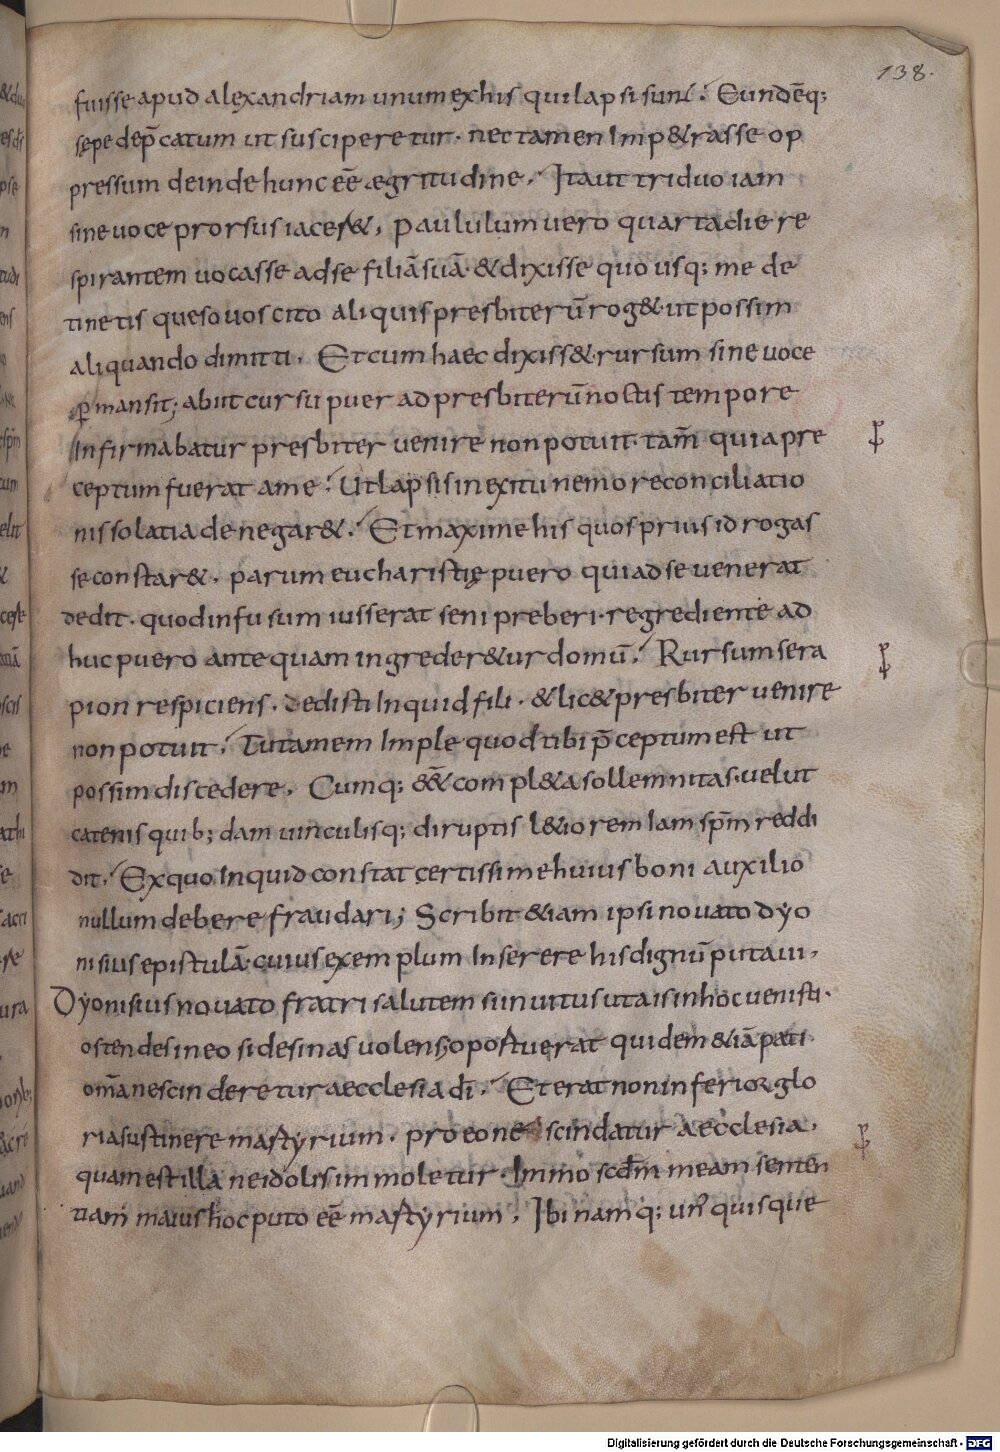 138.
fuisse apud alexandriam unum ex his qui lapsi sunt. Eundēq;
sępe dep̄catum ut susciperetur. nec tamen Imp&rasse op
pressum deinde hunc eē ægritudine. Ita ut triduo iam
sine uoce prorsus iacer&. paululum uero quarta die re
spirantem uocasse ad se filiā suā. & dixisse quo usq; me de
tinetis queso uos cito aliquis presbiterū rog& ut possim
aliquando dimitti. Et cum haec dixiss& rursum sine uoce
ꝑmansit; abiit cursu puer ad presbiterū noctis tempore
Infirmabatur presbiter uenire non potuit. tam̄ quia pre
ceptum fuerat a me. Ut lapsis in exitu nemo reconciliatio
nis solatia denegar&. Et maxime his quos prius id rogas
se constar&. parum eucharistię puero qui ad se uenerat
dedit. quod infusum iusserat seni preberi. regrediente ad
huc puero ante quam ingreder&ur domū. Rursum sera
pion respiciens. dedisti Inquid fili. & lic& presbiter uenire
non potuit. Tu tamem Imple quod tibi p̄ceptum est ut
possim discedere. Cumq; &&̄ compl&a sollemnitas. uelut
catenis quib; dam uinculisq; diruptis l&iorem Iam sp̄m reddi
dit. Ex quo Inquid constat certissime huius boni auxilio
nullum debere fraudari; Scribit &iam ipsi nouato dyo
nisius epistulā. cuius exemplum Inserere his dignū putaui.
Dyonisius nouato fratri salutem si inuitus ut ais in hoc uenisti.
ostendes in eo si desinas uolens oportuerat quidem &iā pati
om̄a ne scinderetur aecclesia dī. Et erat non inferior glo
ria sustinere martyrium. pro eo ne scindatur aecclesia.
quam est illa ne idolis immoletur. Immo scd̄m meam senten
tiam maius hoc puto eē martyrium. Ibi namq; un' quisque